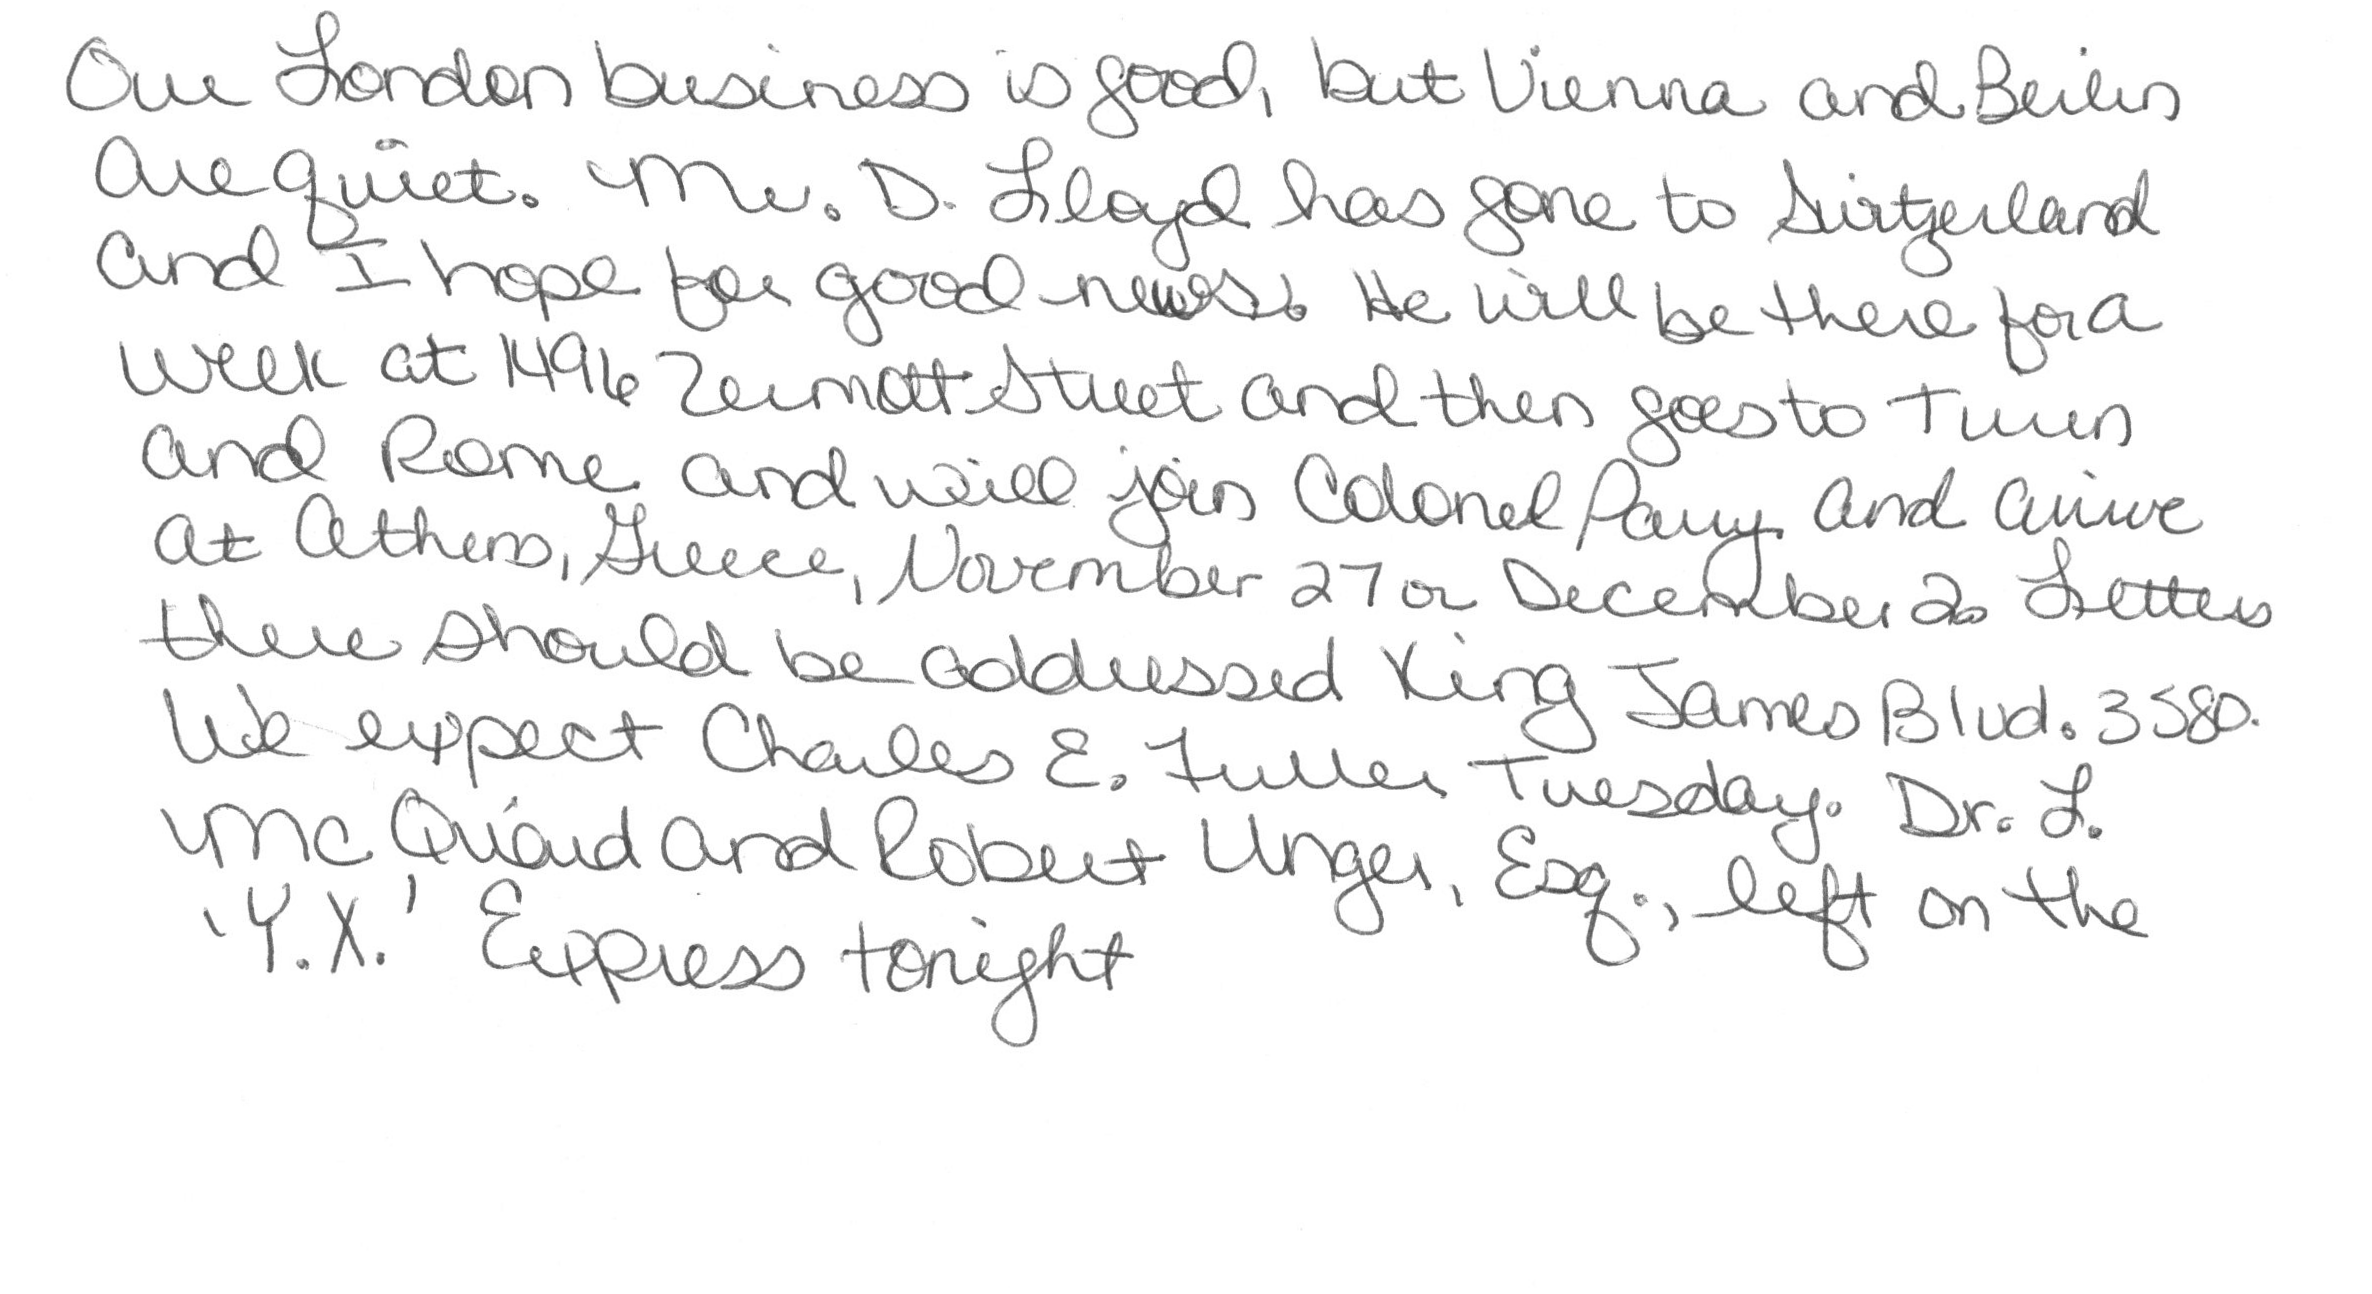 Our London business is good, but Vienna and Berlin
are quiet. Mr. D. Lloyd has gone to Sirtzerland
and I hope for good news. He will be there for a
week at 1496 Zermott Street and then goes to Turin
and Rome and will join Colonel Parry and arrive
at Athens, Greece, November 27 or December 2. Letters
there should be addressed King James Blvd. 3580.
We expect Charles E. Fuller Tuesday. Dr. L.
McQuaid and Robert Unger, Esq., left on the
'Y.X.' Express tonight